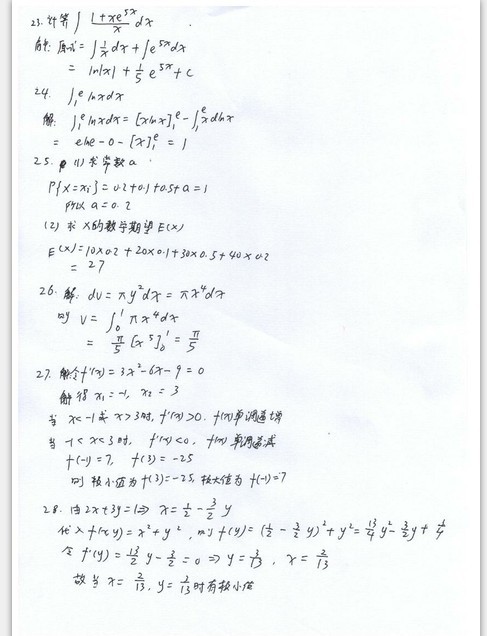 23. 计算 ∫ (1+xe^{5x})/x dx
解: 原式 = ∫ 1/x dx + ∫ e^{5x} dx
= ln|x| + 1/5 e^{5x} + C
24. ∫_1^e lnxdx
解: ∫_1^e lnxdx = [xlnx]_1^e - ∫_1^e xdlnx
= elne - 0 - [x]_1^e = 1
25. (1) 求常数a.
P{X=xi} = 0.2+0.1+0.5+a = 1
所以 a = 0.2
(2) 求X的数学期望 E(X)
E(X) = 10×0.2 + 20×0.1 + 30×0.5 + 40×0.2
= 27
26. 解: dv = πy²dx = πx⁴dx
则 V = ∫_0^1 πx⁴dx
= π/5 [x⁵]_0^1 = π/5
27. 解令f'(x) = 3x²-6x-9 = 0
解得 x₁ = -1, x₂ = 3
当 x<-1或x>3时, f'(x)>0. f(x)单调递增
当 -1<x<3时, f'(x)<0, f(x)单调递减
f(-1) = 7, f(3) = -25
则极小值为f(3)=-25, 极大值为f(-1)=7
28. 由2x+3y=1⇒ x = 1/2 - 3/2 y
代入f(x,y) = x²+y², 则 f(y) = (1/2 - 3/2 y)² + y² = 13/4 y² - 3/2 y + 1/4
令 f'(y) = 13/2 y - 3/2 = 0 ⇒ y = 3/13, x = 2/13
故当 x = 2/13, y = 3/13时有极小值